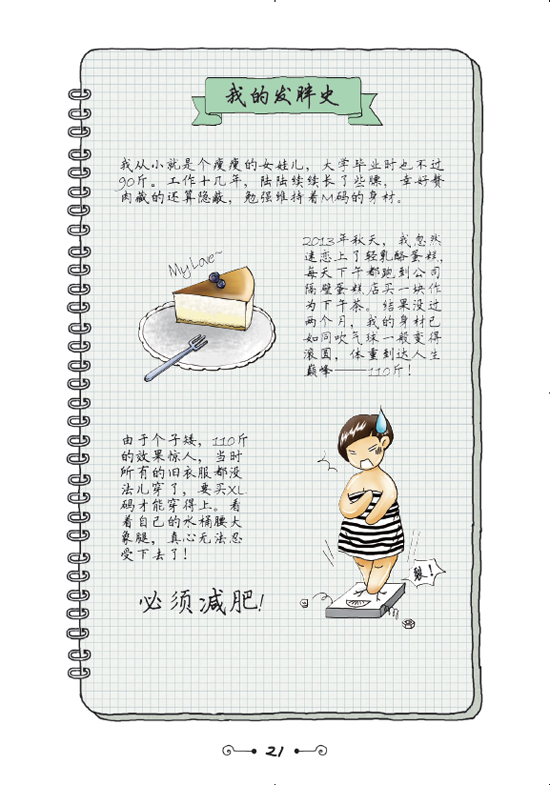 我的发胖史
我从小就是个瘦瘦的女娃儿，大学毕业时也不过
90斤。工作十几年，陆陆续续长了些膘，幸好赘
肉藏的还算隐蔽，勉强维持着M码的身材。
My Love~
2013年秋天，我忽然
迷恋上了轻乳酪蛋糕，
每天下午都跑到公司
隔壁蛋糕店买一块作
为下午茶。结果没过
两个月，我的身材已
如同吹气球一般变得
滚圆，体重到达人生
巅峰——110斤！
由于个子矮，110斤
的效果惊人，当时
所有的旧衣服都没
法儿穿了，要买XL
码才能穿得上。看
着自己的水桶腰大
象腿，真心无法忍
受下去了！
裂！
必须减肥！
21